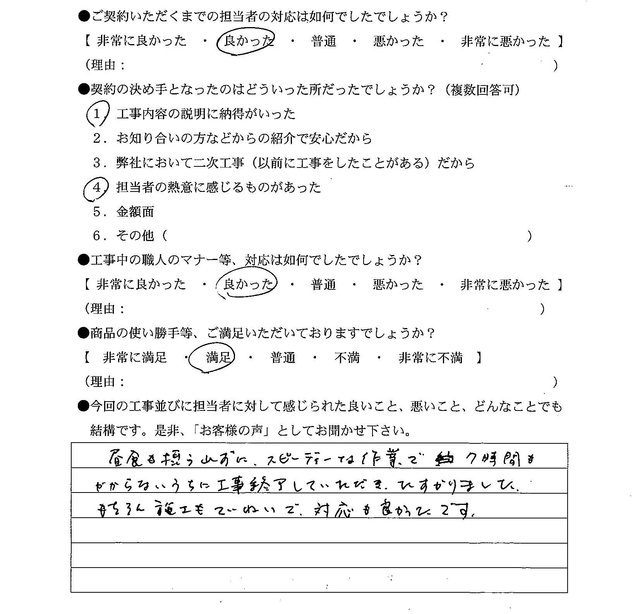 ●ご契約いただくまでの担当者の対応は如何でしたでしょうか？
【 非常に良かった ・ 良かった ・ 普通 ・ 悪かった ・ 非常に悪かった 】
（理由： ）
●契約の決め手となったのはどういった所だったでしょうか？（複数回答可）
1．工事内容の説明に納得がいった
2．お知り合いの方などからの紹介で安心だから
3．弊社において二次工事（以前に工事をしたことがある）だから
4．担当者の熱意に感じるものがあった
5．金額面
6．その他（ ）
●工事中の職人のマナー等、対応は如何でしたでしょうか？
【 非常に良かった ・ 良かった ・ 普通 ・ 悪かった ・ 非常に悪かった 】
（理由： ）
●商品の使い勝手等、ご満足いただいておりますでしょうか？
【 非常に満足 ・ 満足 ・ 普通 ・ 不満 ・ 非常に不満 】
（理由： ）
●今回の工事並びに担当者に対して感じられた良いこと、悪いこと、どんなことでも
結構です。是非、「お客様の声」としてお聞かせ下さい。
昼食も摂う ずに、スピーディーな作業で 7時間も
かからないうちに工事終了していただき、 かりました。
もちろん 施工もていねいで、対応も良かったです。